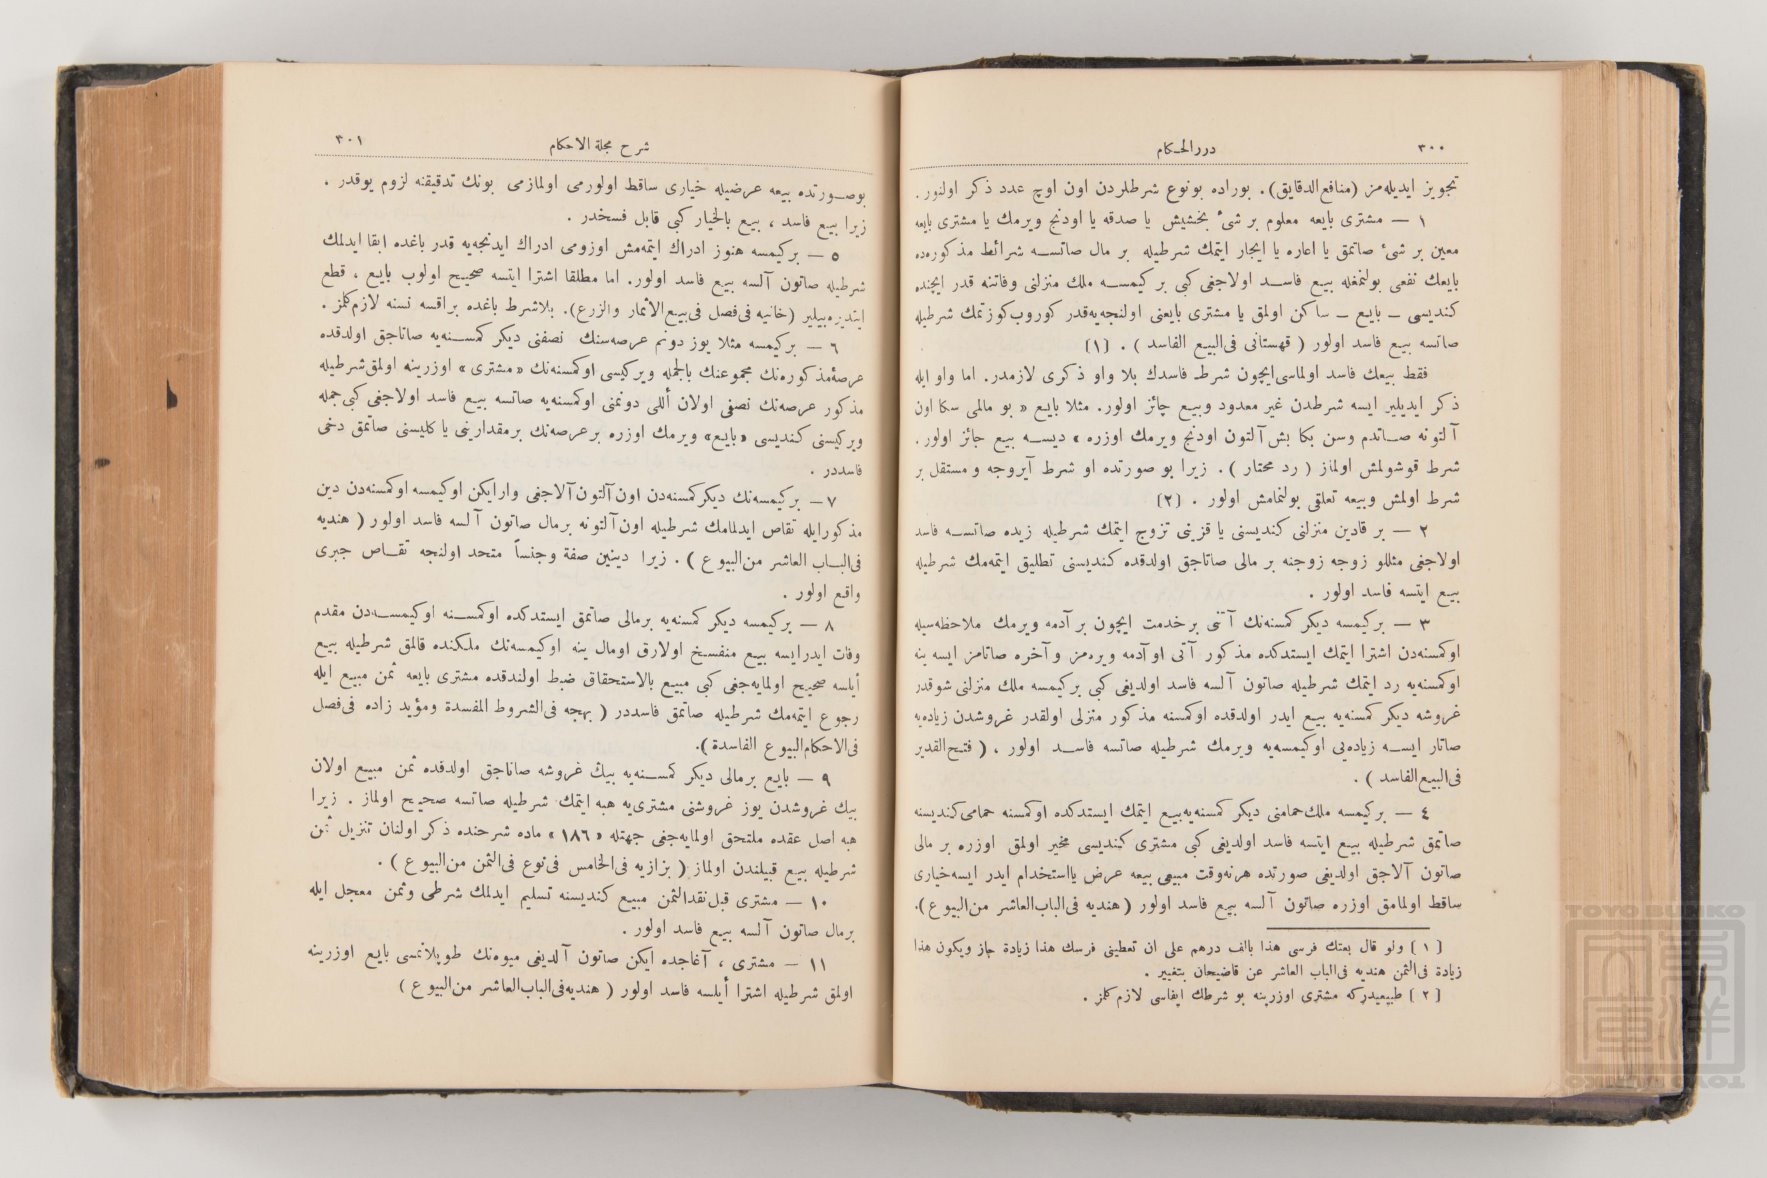 ٣٠٠
دررالحكام
تجويز ايديله‌مز (منافع‌الدقايق). بوراده بونوع شرطلردن اون اوچ عدد ذكر اولنور.
١ — مشترى بايعه معلوم بر شئ بخشيش يا صدقه يا اودنج ويرمك يا مشترى بايعه
معين بر شئ صاتمق يا اعاره يا ايجار ايتمك شرطيله بر مال صاتسه شرائط مذكوره‌ده
بايعك نفعى بولنمغله بيع فاسد اولاجغى كبى بر كيمسه ملك منزلنى وفاتنه قدر ايچنده
كنديسى — بايع — ساكن اولمق يا مشترى بايعنى اولنجه‌يه‌قدر كوروب‌كوزتمك شرطيله
صاتسه بيع فاسد اولور ( قهستانى فى‌البيع الفاسد ) . [١]
فقط بيعك فاسد اولماسى‌ايچون شرط فاسدك بلا واو ذكرى لازمدر. اما واو ايله
ذكر ايديلير ايسه شرطدن غير معدود وبيع جائز اولور. مثلا بايع « بو مالمى سكا اون
آلتونه صاتدم وسن بكا بش آلتون اودنج ويرمك اوزره » ديسه بيع جائز اولور.
شرط قوشولمش اولماز ( رد محتار ) . زيرا بو صورتده او شرط آيروجه و مستقل بر
شرط اولمش وبيعه تعلقى بولنمامش اولور . [٢]
٢ — بر قادين منزلنى كنديسنى يا قزينى تزوج ايتمك شرطيله زيده صاتسه فاسد
اولاجغى مثللو زوجه زوجنه بر مالى صاتاجق اولدقده كنديسنى تطليق ايتمه‌مك شرطيله
بيع ايتسه فاسد اولور .
٣ — بركيمسه ديكر كمسنه‌نك آتنى برخدمت ايچون بر آدمه ويرمك ملاحظه‌سيله
اوكمسنه‌دن اشترا ايتمك ايستدكده مذكور آتى اوآدمه ويره‌مز وآخره صاتامز ايسه ينه
اوكمسنه‌يه رد ايتمك شرطيله صاتون آلسه فاسد اولديغى كبى بركيمسه ملك منزلنى شوقدر
غروشه ديكر كمسنه‌يه بيع ايدر اولدقده اوكمسنه مذكور منزلى اولقدر غروشدن زياده‌يه
صاتار ايسه زياده‌يى اوكيمسه‌يه ويرمك شرطيله صاتسه فاسد اولور ، ( فتح‌القدير
فى‌البيع‌الفاسد ) .
٤ — بركيمسه ملك‌حمامنى ديكر كمسنه‌يه‌بيع ايتمك ايستدكده اوكمسنه حمامى‌كنديسنه
صاتمق شرطيله بيع ايتسه فاسد اولديغى كبى مشترى كنديسى مخير اولمق اوزره بر مالى
صاتون آلاجق اولديغى صورتده هرنه‌وقت مبيعى بيعه عرض يااستخدام ايدر ايسه‌خيارى
ساقط اولمامق اوزره صاتون آلسه بيع فاسد اولور ( هنديه فى‌الباب‌العاشر من‌البيوع ).
[ ١ ] ولو قال بعتك فرسى هذا بالف درهم على ان تعطينى فرسك هذا زيادة جاز ويكون هذا
زيادة فى‌الثمن هنديه فى‌الباب العاشر عن قاضيحان بتغيير .
[ ٢ ] طبيعيدركه مشترى اوزرينه بو شرطك ايفاسى لازم‌كلز .
شرح مجلة الاحكام
٣٠١
بوصورتده بيعه عرضيله خيارى ساقط اولورمى اولمازمى بونك تدقيقنه لزوم يوقدر .
زيرا بيع فاسد ، بيع بالخيار كبى قابل فسخدر .
٥ — بركيمسه هنوز ادراك ايتمه‌مش اوزومى ادراك ايدنجه‌يه قدر باغده ابقا ايدلمك
شرطيله صاتون آلسه بيع فاسد اولور. اما مطلقا اشترا ايتسه صحيح اولوب بايع ، قطع
ايتديره‌بيلير (خانيه فى‌فصل فى‌بيع‌الاثمار والزرع). بلاشرط باغده براقسه نسنه لازم‌كلز .
٦ — بركيمسه مثلا يوز دونم عرصه‌سنك نصفنى ديكر كمسنه‌يه صاتاجق اولدقده
عرصۀمذكوره‌نك مجموعنك بالجمله ويركيسى اوكمسنه‌نك «مشترى» اوزرينه اولمق‌شرطيله
مذكور عرصه‌نك نصفى اولان أللى دونمنى اوكمسنه‌يه صاتسه بيع فاسد اولاجغى كبى‌جمله
ويركيسنى كنديسى «بايع» ويرمك اوزره برعرصه‌نك برمقدارينى يا كليسنى صاتمق دخى
فاسددر .
٧ — بركيمسه‌نك ديكركمسنه‌دن اون‌آلتون‌آلاجغى وارايكن اوكيمسه اوكمسنه‌دن دين
مذكورايله تقاص ايدلمامك شرطيله اون‌آلتونه برمال صاتون آلسه فاسد اولور ( هنديه
فى‌الباب العاشر من‌البيوع ) . زيرا دينين صفة وجنساً متحد اولنجه تقاص جبرى
واقع اولور .
٨ — بركيمسه ديكر كمسنه‌يه برمالى صاتمق ايستدكده اوكمسنه اوكيمسه‌دن مقدم
وفات ايدرايسه بيع منفسخ اولارق اومال ينه اوكيمسه‌نك ملكنده قالمق شرطيله بيع
أيلسه صحيح اولمايه‌جغى كبى مبيع بالاستحقاق ضبط اولندقده مشترى بايعه ثمن مبيع ايله
رجوع ايتمه‌مك شرطيله صاتمق فاسددر ( بهجه فى‌الشروط المفسدة ومؤيد زاده فى‌فصل
فى‌الاحكام‌البيوع الفاسدة ).
٩ — بايع برمالى ديكر كمسنه‌يه بيك غروشه صاتاجق اولدقده ثمن مبيع اولان
بيك غروشدن يوز غروشنى مشترى‌يه هبه ايتمك شرطيله صاتسه صحيح اولماز . زيرا
هبه اصل عقده ملتحق اولمايه‌جغى جهتله «١٨٦» ماده شرحنده ذكر اولنان تنزيل ثمن
شرطيله بيع قبيلندن اولماز ( بزازيه فى‌الخامس فى‌نوع فى‌الثمن من‌البيوع ) .
١٠ — مشترى قبل‌نقدالثمن مبيع كنديسنه تسليم ايدلمك شرطى وثمن معجل ايله
برمال صاتون آلسه بيع فاسد اولور .
١١ — مشترى ، آغاجده ايكن صاتون آلديغى ميوه‌نك طوپلانمسى بايع اوزرينه
اولمق شرطيله اشترا أيلسه فاسد اولور ( هنديه‌فى‌الباب‌العاشر من‌البيوع )
TOYO BUNKO